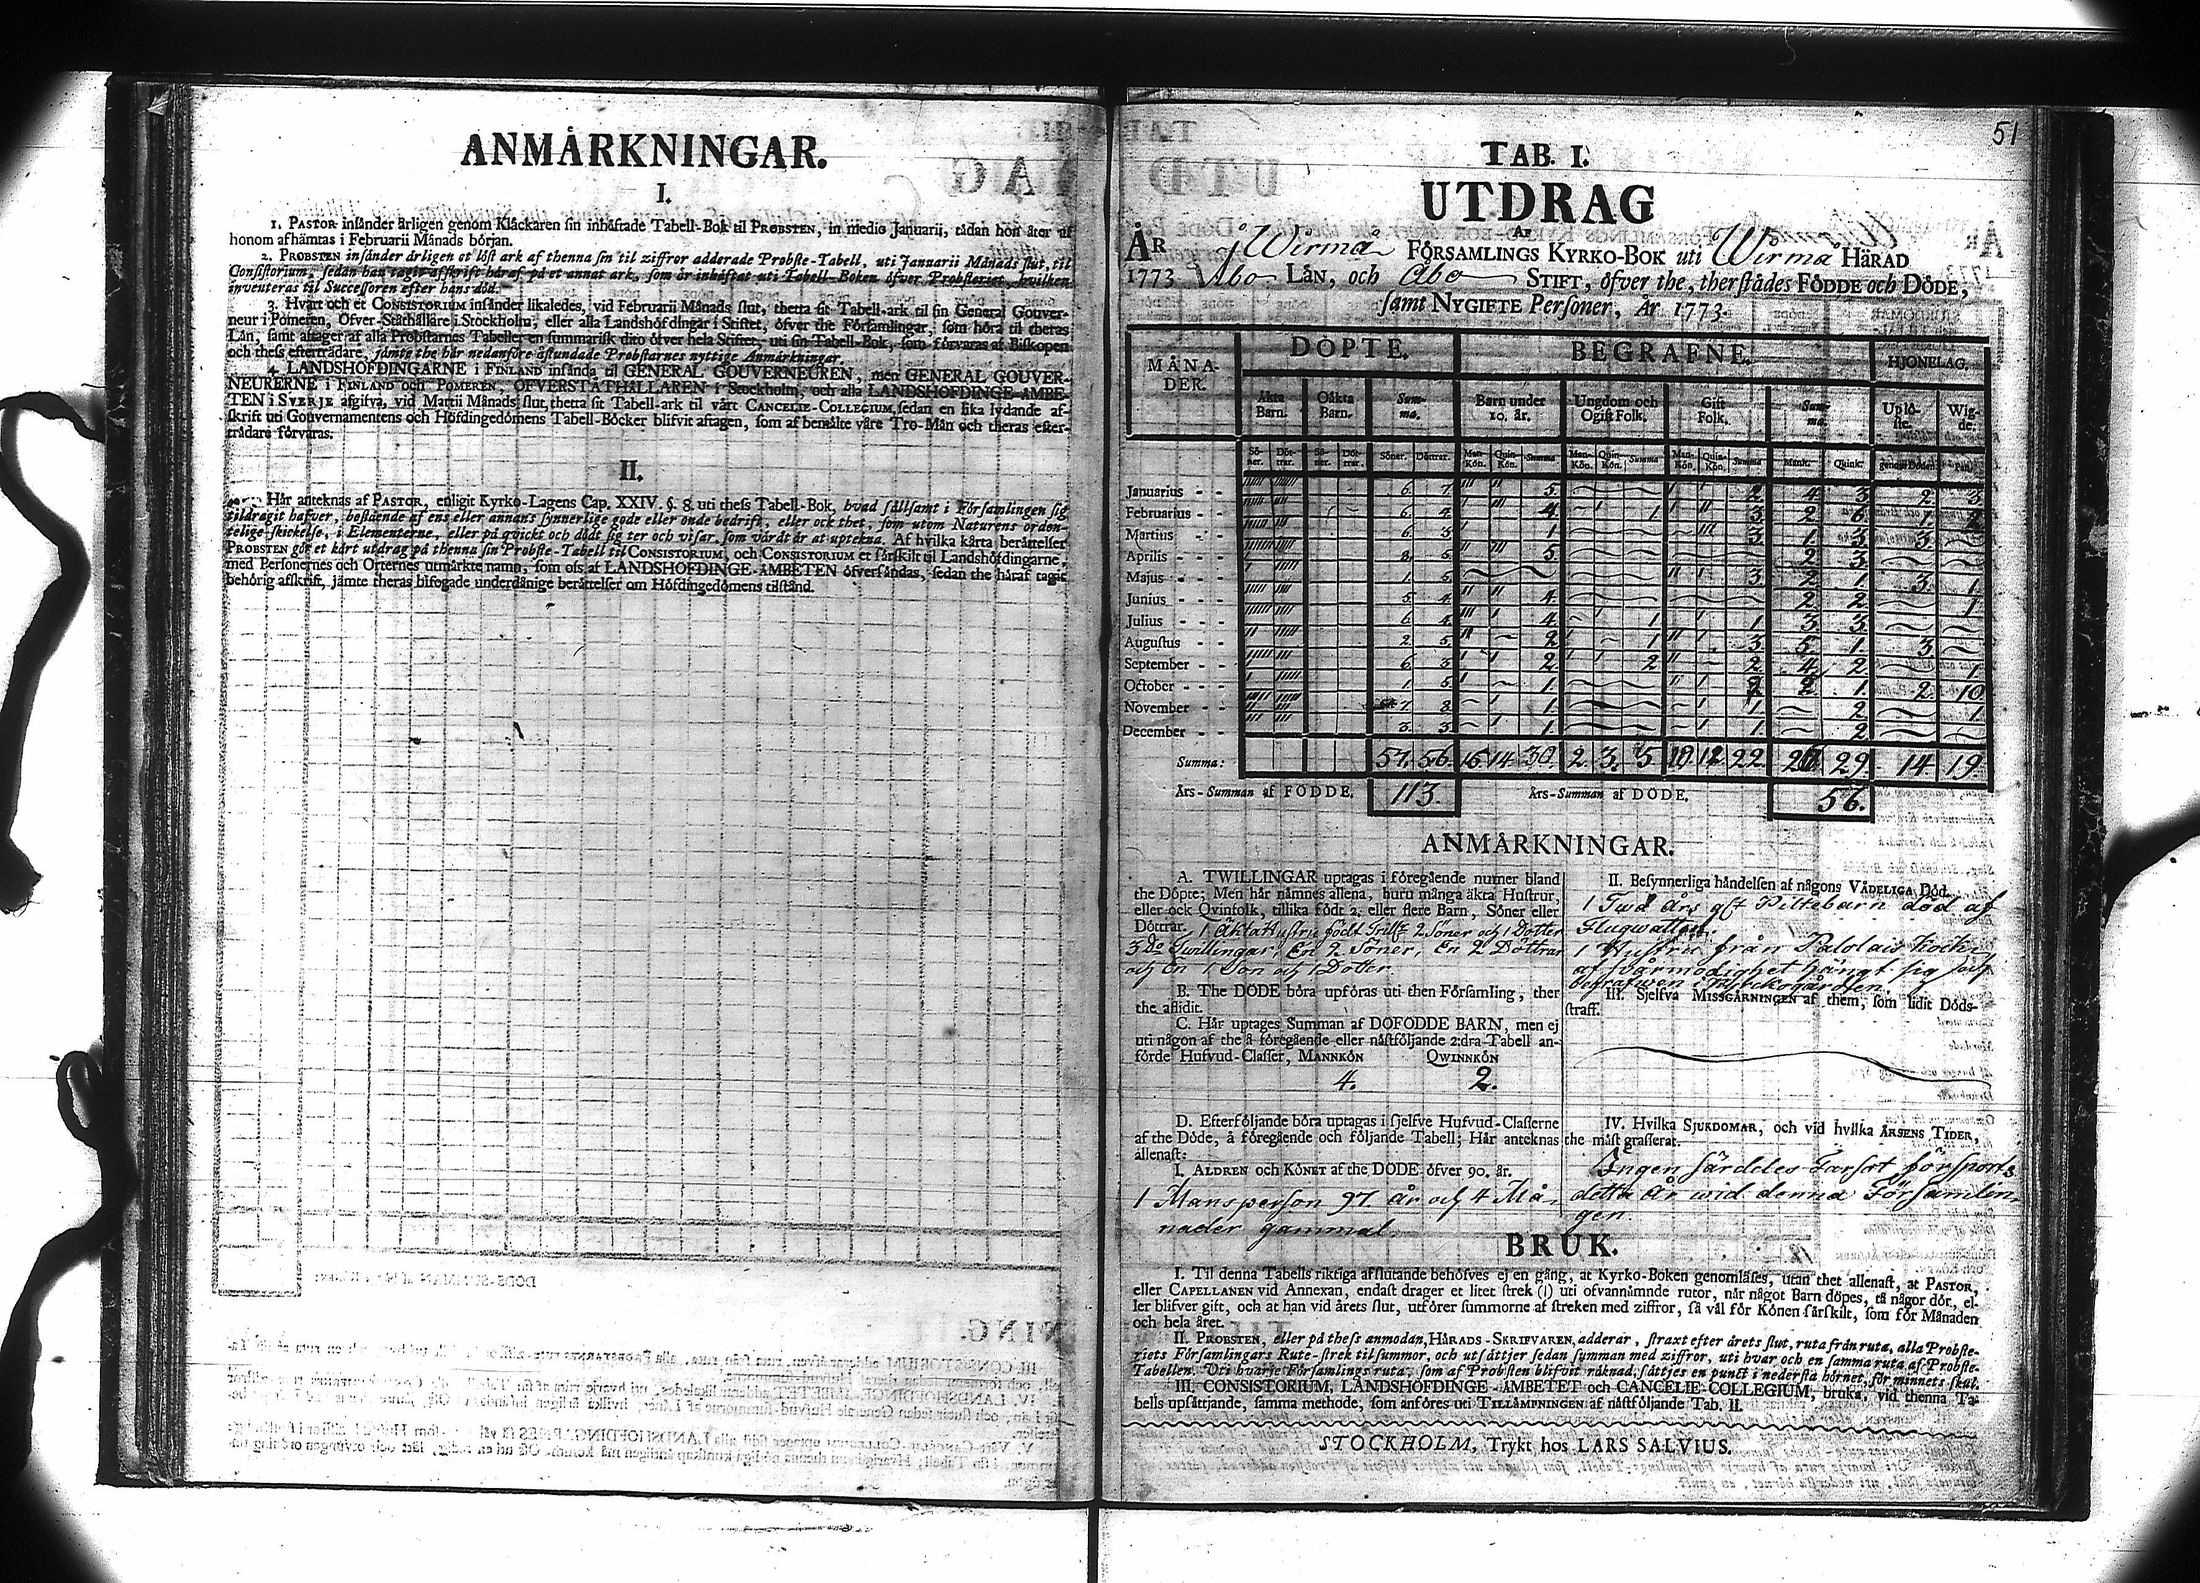 ANMÅRKNINGAR.
I.
1. PASTOR insånder årligen genom Klåckaren sin inhåftade Tabell-Bok til PROBSTEN, in medio Januarii, tådan hon åter af
honom afhåmtas i Februarii Månads början.
2. PROBSTEN insånder årligen et löst ark af thenna sin til ziffror adderade Probste-Tabell, uti Januarii Månads slut, til
Consistorium, sedan han tagit afskrift håraf på et annat ark, som år inhåftat uti Tabell-Boken öfver Probsteriet, hvilken
inventeras til Successoren efter hans död.
3. Hvart och et CONSISTORIUM insånder likaledes, vid Februarii Månads slut, thetta sit Tabell-ark til sin General Gouver-
neur i Pomeren, Öfver-Ståthållare i Stockholm, eller alla Landshöfdingar i Stiftet, öfver the Församlingar, som höra til theras
Lån, samt aftager af alla Probstarnes Tabeller en summarisk dito öfver hela Stiftet, uti sin Tabell-Bok, som förvaras af Biskopen
och thess efterträdare, jåmte the hår nedanföre åstundade Probstarnes nyttige Anmårkningar.
4. LANDSHÖFDINGARNE i FINLAND insånda til GENERAL GOUVERNEUREN, men GENERAL GOUVER-
NEURERNE i FINLAND och POMEREN, ÖFVERSTÅTHÅLLAREN i Stockholm, och alla LANDSHÖFDINGE-ÅMBE-
TEN i SVERJE afgifva, vid Martii Månads slut, thetta sit Tabell-ark til vårt CANCELIE-COLLEGIUM, sedan en lika lydande af-
skrift uti Gouvernamentens och Höfdingedömens Tabell-Böcker blifvit aftagen, som af bemålte våre Tro-Mån och theras efter-
trådare förvaras.
II.
Hår anteknas af PASTOR, enligit Kyrko-Lagens Cap. XXIV. §. 8. uti thess Tabell-Bok, hvad sållsamt i Församlingen sig
tildragit hafver, bestående af ens eller annans synnerlige gode eller onde bedrift, eller ock thet, som utom Naturens orden-
telige skickelse, i Elementerne, eller på qvickt och dödt sig ter och visar, som vårdt år at uptekna. Af hvilka kårta beråttelser
PROBSTEN gör et kårt utdrag på thenna sin Probste-Tabell til CONSISTORIUM, och CONSISTORIUM et sårskilt til Landshöfdingarne,
med Personernes och Orternes utmårkte namn, som oss af LANDSHÖFDINGE-ÅMBETEN öfversåndas, sedan the håraf tagit
behörig afskrift, jåmte theras bifogade underdånige beråttelser om Höfdingedömens tilstånd.
51
TAB. I.
UTDRAG
AF
ÅR
1773
i Wirmå FÖRSAMLINGS KYRKO-BOK uti Wirmå HÅRAD
Åbo LÅN, och Åbo STIFT, öfver the, therstådes FÖDDE och DÖDE,
samt NYGIFTE Personer, År 1773.
MÅNA-
DER. DÖPTE. BEGRAFNE. HJONELAG.
Åkta Barn. Oåkta Barn. Summa. Barn under 10. år. Ungdom och Ogift Folk. Gift Folk. Summa. Uplö-ste. Wig-de:
Sö-ner. Döt-trar. Sö-ner. Döt-trar. Söner. Döttrar. Man-Kön. Quin-Kön. Summa Man-Kön. Quin-Kön. Summa Man-Kön. Quin-Kön. Summa Mank. Quink. genom Döden. Par.
Januarius - - 6. 7. 5. 2 4 3 2 3
Februarius - - 6 4. 4. 1 3 2 6 1. 2
Martius - - 6 3. 1 3 1. 3. 3.
Aprilis - - 8 5 5 2 3.
Majus - - 1. 5 3. 2 1. 3. 1.
Junius - - 5 4. 4. 2. 2. 1
Julius - - 6 4. 4. 1 1. 3 3.
Augustus - - 2 5. 2 1 3. 5. 1. 3.
September - - 6 3. 2. 2 2 4 2 1.
October - - 1. 5. 1. 2 2 1. 2 10
November - - 7 8. 1. 1. 2 1.
December - - 3 3. 1. 1. 2
Summa: 57. 56. 16 14 30. 2. 3. 5 10. 12 22 27 29. 14 19.
Års-Summan af FÖDDE. 113. Års-Summan af DÖDE. 56.
ANMÅRKNINGAR.
A. TWILLINGAR uptagas i föregående numer bland
the Döpte; Men hår nåmnes allena, huru många åkta Hustrur,
eller ock Qvinfolk, tillika födt 2. eller flere Barn, Söner eller
Döttrar. 1 Åkta Hustru födt Trill. 2 Söner och 1 Dotter
3 do Twillingar, En 2 Söner, En 2 Döttrar
och En 1 Son och 1 Dotter.
B. The DÖDE böra upföras uti then Församling, ther
the aflidit.
C. Hår uptages Summan af DÖFÖDDE BARN, men ej
uti någon af the å föregående eller nåstföljande 2:dra Tabell an-
förde Hufvud-Classer, MANNKÖN QWINNKÖN
4. 2.
D. Efterföljande böra uptagas i sjelfve Hufvud-Classerne
af the Döde, å föregående och följande Tabell; Hår anteknas
allenast:
I. ÅLDREN och KÖNET af the DÖDE öfver 90. år.
1 Mansperson 97. år och 4 Må-
nader gammal.
II. Besynnerliga håndelsen af någons VÅDELIGA Död.
1 Två års gt Piltebarn död af
Flugwatten.
1 Hustru från Palolais
af svårmodighet hängt sig och
begrafwen i Kyrckogården.
III. Sjelfva MISSGÅRNINGEN af them, som lidit Döds-
straff.
IV. Hvilka SJUKDOMAR, och vid hvilka ÅRSENS TIDER,
the måst grasserat.
Ingen särdeles Farsot försports
detta år wid denna Församlin-
gen.
BRUK.
I. Til denna Tabells riktiga afslutande behöfves ej en gång, at Kyrko-Boken genomlåses, utan thet allenast, at PASTOR,
eller CAPELLANEN vid Annexan, endast drager et litet strek (1) uti ofvannåmnde rutor, når något Barn döpes, eå någor dör, el-
ler blifver gift, och at han vid årets slut, utförer summorne af streken med ziffror, så vål för Könen sårskilt, som för Månaden
och hela året.
II. PROBSTEN, eller på thess anmodan, HÅRADS-SKRIFVAREN, adderar, straxt efter årets slut, ruta från ruta, alla Probste-
riets Församlingars Rute-strek til summor, och utsåttjer sedan summan med ziffror, uti hvar och en samma ruta af Probste-
Tabellen. Uti hvarje Församlings ruta, som af Probsten blifvit råknad, såttjes en punct i nedersta hörnet, för minnets skul.
III. CONSISTORIUM, LANDSHÖFDINGE-ÅMBETET och CANCELIE-COLLEGIUM, bruka, vid thenna Ta-
bells upsåttjande, samma methode, som anföres uti TILLÅMPNINGEN af nåstföljande Tab. II.
STOCKHOLM, Trykt hos LARS SALVIUS.